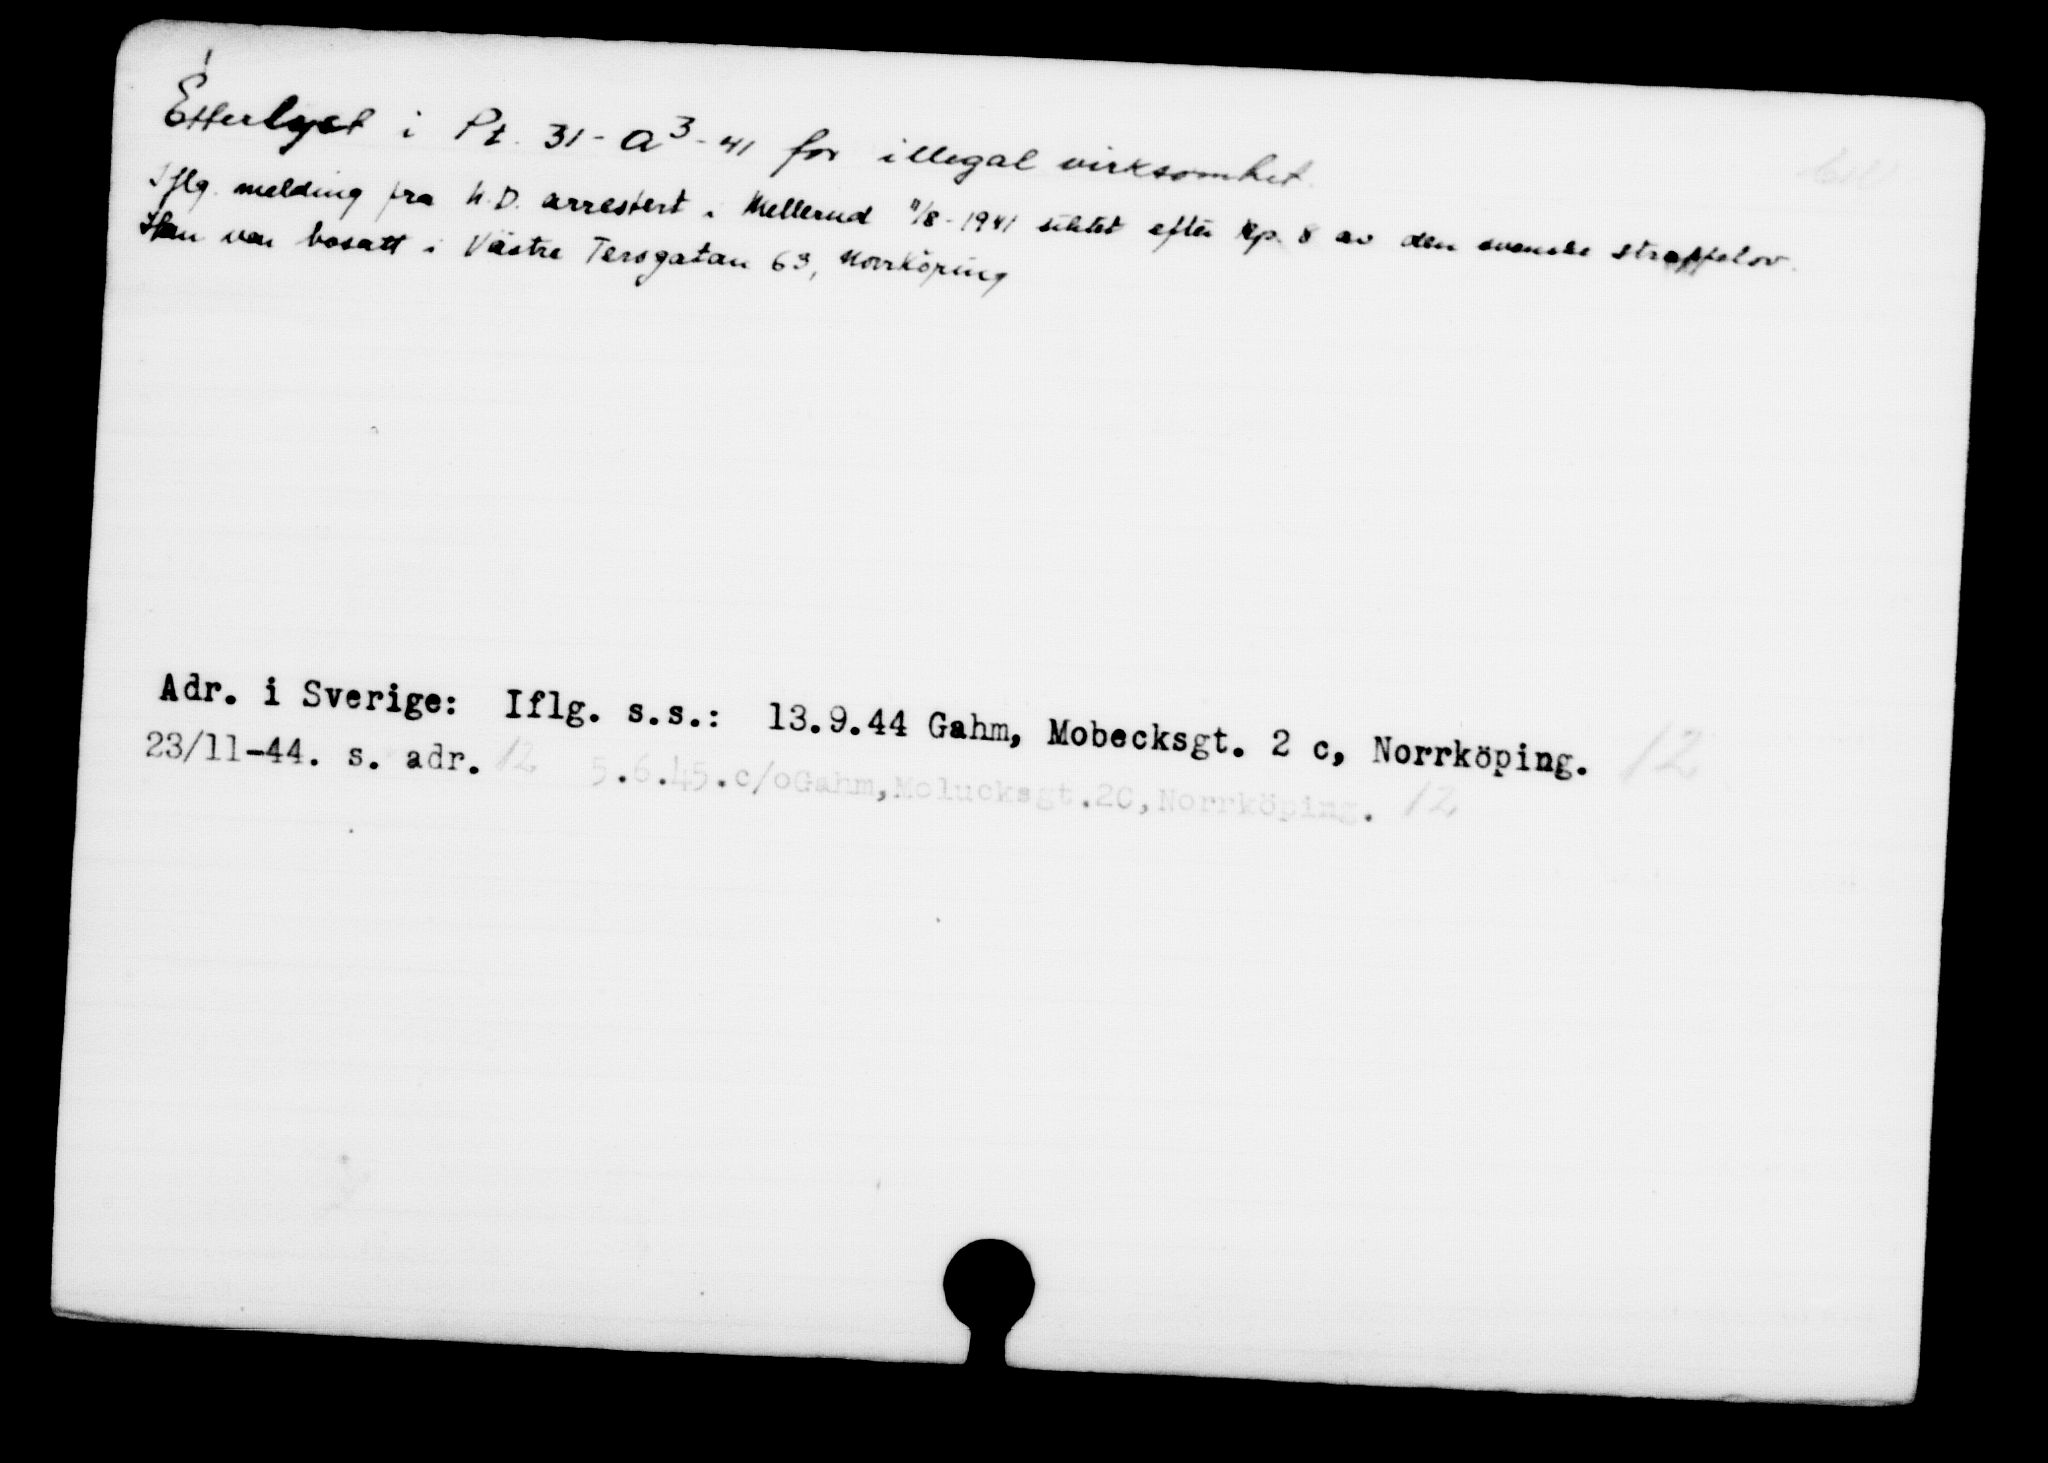 Etterlyst i Pt. 31-a3-41 for illegal virksomhet.
Iflg. melding fra U.D. arrestert i Mellerud 11/8-1941 siktet efter kp. 8 av den svenske straffelov.
Han var bosatt i Västra Tersgatan 63, Norrköping
Adr. i Sverige: Iflg. s.s.: 13.9.44 Gahm, Mobecksgt. 2 c, Norrköping. 12
23/11-44. s. adr. 12 5.6.45.c/oGahm,Molucksgt.2C,Norrköping. 12